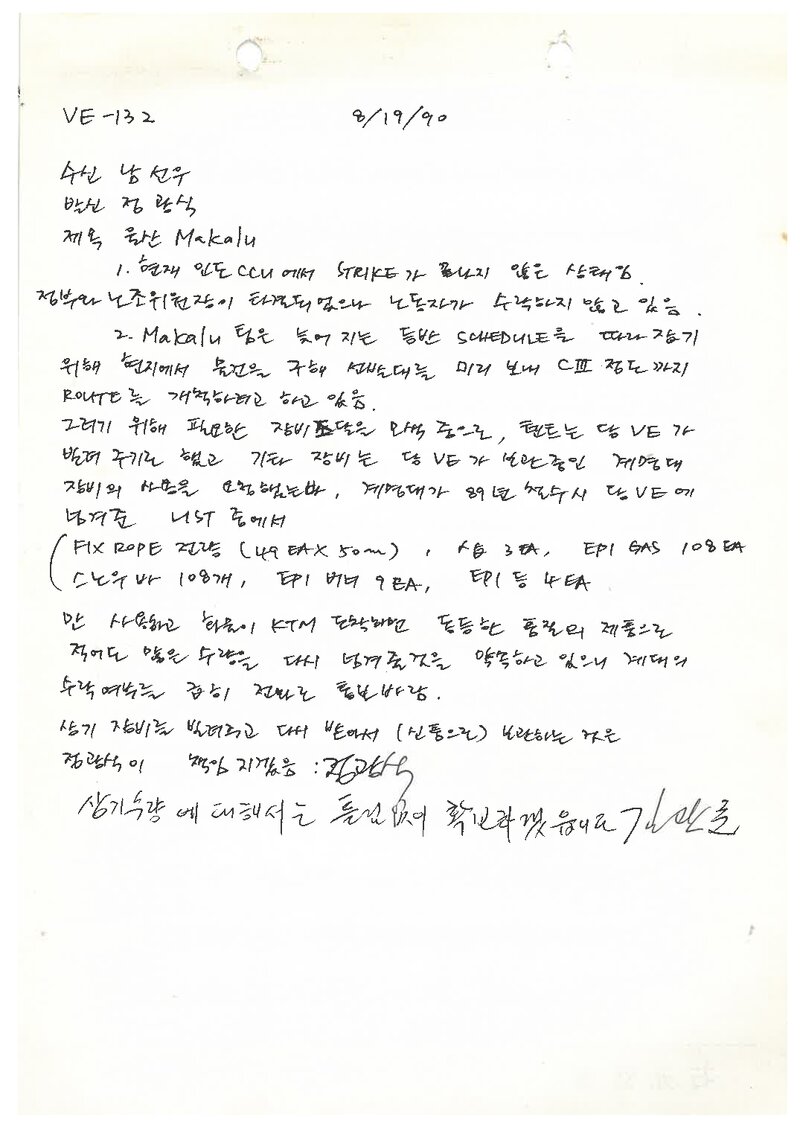 VE-132 8/19/90
수신 남선우
발신 정광식
제목 울산 Makalu
1. 현재 인도 CCU에서 STRIKE가 끝나지 않은 상태임.
정부와 노조위원장이 타결되었으나 노동자가 수락하지 않고 있음.
2. Makalu 팀은 늦어 지는 등반 SCHEDULE을 따라 잡기
위해 현지에서 물건을 구해 선발대를 미리 보내 CIII 정도까지
ROUTE를 개척하려고 하고 있음.
그러기 위해 필요한 장비조달을 모색 중으로, 텐트는 당 VE가
빌려 주기로 했고 기타 장비는 당 VE가 보관중인 계명대
장비의 사용을 요청했는바, 계명대가 89년 철수시 당 VE에
넘겨준 LIST 중에서
(FIX ROPE 전량 (49 EA X 50m), 삽 3 EA, EPI GAS 108 EA
스노우바 108개, EPI 버너 9 EA, EPI 등 4 EA
만 사용하고 화물이 KTM 도착하면 동등한 품질의 제품으로
적어도 많은 수량을 다시 넘겨줄것을 약속하고 있으니 계대의
수락여부를 급히 전화로 통보바람.
상기 장비를 빌려주고 다시 받아서 (신품으로) 보관하는 것은
정광식이 책임 지겠음 : 정광식
상기수량에 대해서는 틀림없이 확보하겠음니다